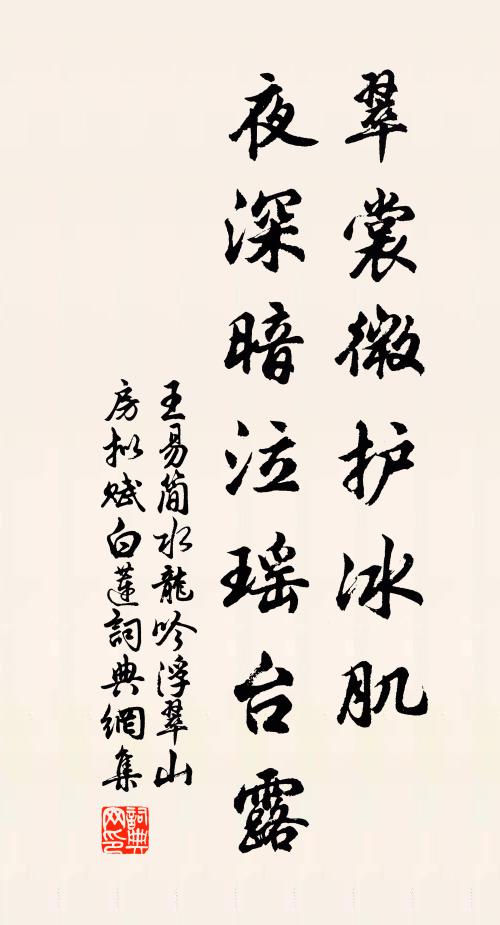 翠裳微护冰肌
夜深暗泣瑶台露
王易简水龍吟浮翠山
房拟赋白蓮詞典網集
詞典
网印